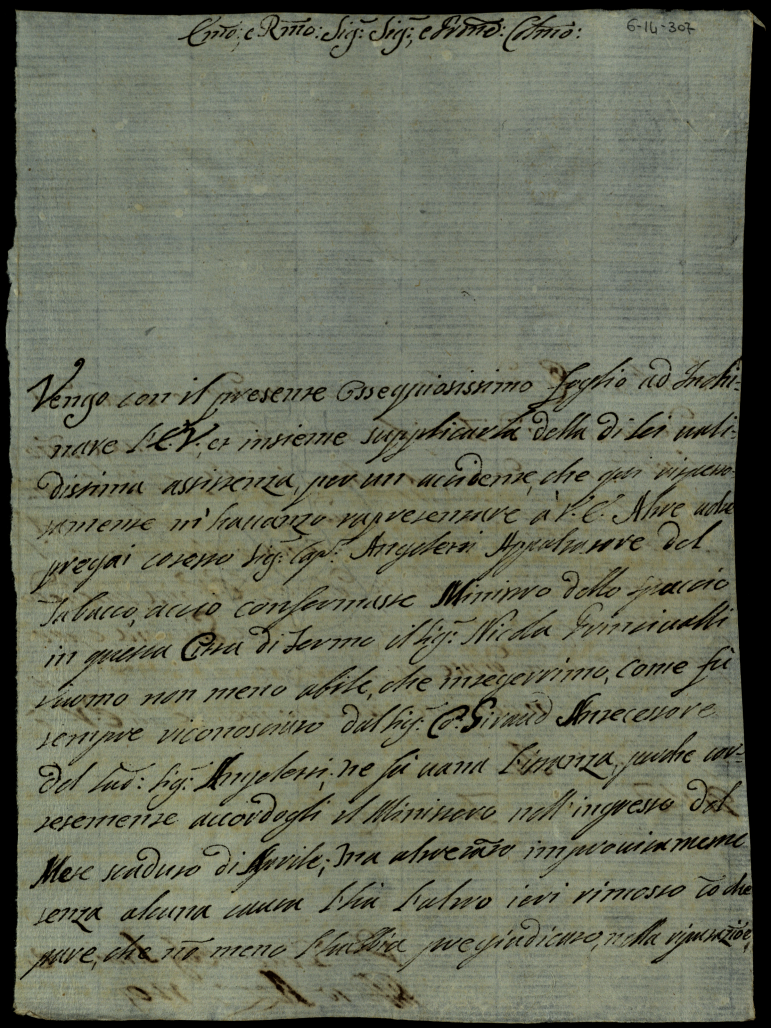 Emo:, e Rmo: Sig:r Sig:r, e Prno: Colmo:
6-14-307
Vengo con il presente Ossequiosissimo foglio ad Inchi-
nare l'E.V., et insieme supplicarla della di Lei vali-
dissima assistenza, per un accidente, che qui rispetto-
samente m'havanzo rapresentare à V.E. Altre volte
pregai cotesto Sig:r Cap:n Angoletti Appaltatore del
Tabacco, acciò confermasse Ministro dello spaccio
in questa Città di Fermo il Sig:r Nicola Principalli
huomo non meno abile, che integerrimo, come fù
sempre riconosciuto dal Sig:r Co: Giraud Antecessore
del sud:o Sig:r Angoletti, ne fù vana l'instanza, perche cor-
tesemente accordogli il Ministero nell'ingresso del
Mese scaduto di Aprile; Ma altretanto improvisamente
senza alcuna causa l'hà l'altro ieri rimosso co che
pare, che nõ meno l'habbia pregiudicato, nella riputazióe,